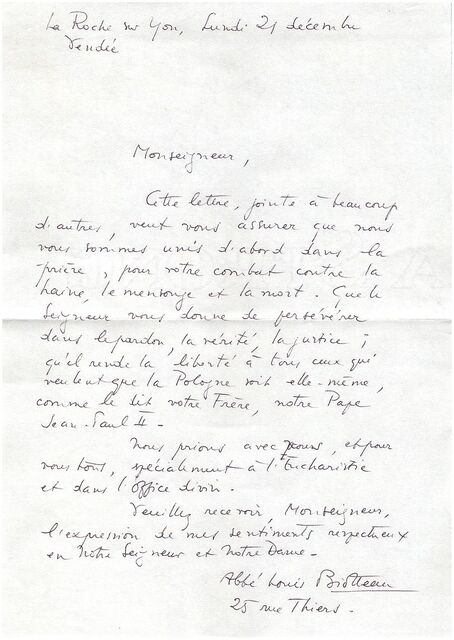 La Roche sur Yon, Lundi 21 décembre
Vendée
Monseigneur,
Cette lettre, jointe à beaucoup
d'autres, veut vous assurer que nous
vous sommes unis d'abord dans la
prière, pour votre combat contre la
haine, le mensonge et la mort. Que le
Seigneur vous donne de persévérer
dans le pardon, la vérité, la justice ;
qu'il rende la liberté à tous ceux qui
veulent que la Pologne soit elle-même,
comme le dit votre Frère, notre Pape
Jean-Paul II -
Nous prions avec vous, et pour
vous tous, spécialement à l'Eucharistie
et dans l'Office divin.
Veuillez recevoir, Monseigneur,
l'expression de mes sentiments respectueux
en Notre Seigneur et Notre Dame -
Abbé Louis
25 rue Thiers -